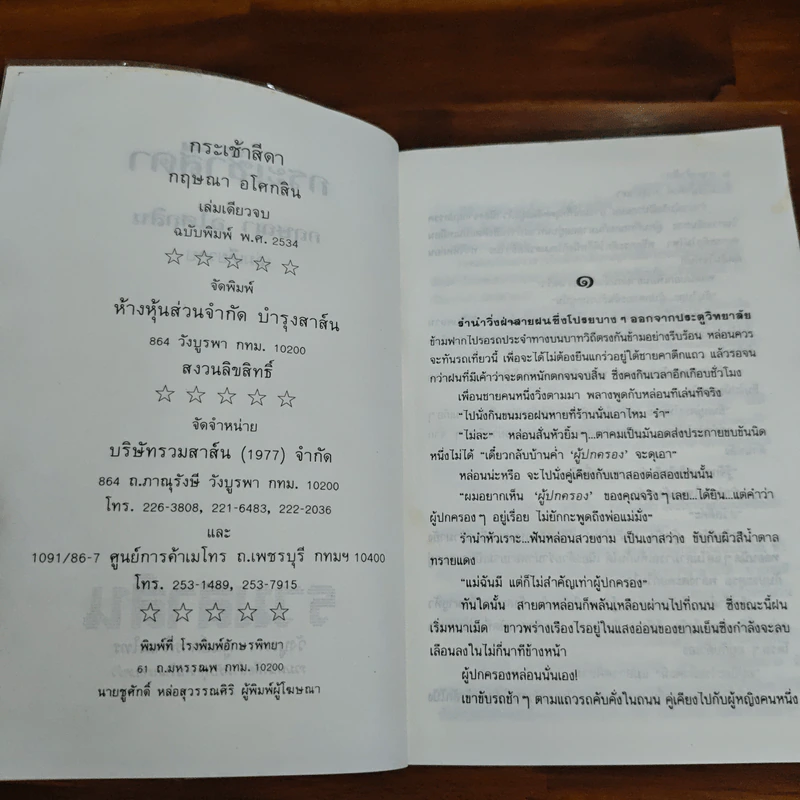 กระเช้าสีดา
กฤษณา อโศกสิน
เล่มเดียวจบ
ฉบับพิมพ์ พ.ศ. 2534
☆ ☆ ☆ ☆ ☆
จัดพิมพ์
ห้างหุ้นส่วนจำกัด บำรุงสาส์น
864 วังบูรพา กทม. 10200
สงวนลิขสิทธิ์
☆ ☆ ☆ ☆ ☆
จัดจำหน่าย
บริษัทรวมสาส์น (1977) จำกัด
864 ถ.ภาณุรังษี วังบูรพา กทม. 10200
โทร. 226-3808, 221-6483, 222-2036
และ
1091/86-7 ศูนย์การค้าเมโทร ถ.เพชรบุรี กทมฯ 10400
โทร. 253-1489, 253-7915
☆ ☆ ☆ ☆ ☆
พิมพ์ที่ โรงพิมพ์อักษรพิทยา
61 ถ.มหรรณพ กทม. 10200
นายชูศักดิ์ หล่อสุวรรณศิริ ผู้พิมพ์ผู้โฆษณา
๑
รำนำวิ่งฝ่าสายฝนซึ่งโปรยบาง ๆ ออกจากประตูวิทยาลัย
ข้ามฟากไปรอรถประจำทางบนบาทวิถีตรงกันข้ามอย่างรีบร้อน หล่อนควร
จะทันรถเที่ยวนี้ เพื่อจะได้ไม่ต้องยืนแกร่วอยู่ใต้ชายคาตึกแถว แล้วรอจน
กว่าฝนที่มีเค้าว่าจะตกหนักตกจนจบสิ้น ซึ่งคงกินเวลาอีกเกือบชั่วโมง
เพื่อนชายคนหนึ่งวิ่งตามมา พลางพูดกับหล่อนทีเล่นทีจริง
“ไปนั่งกินขนมรอฝนหายที่ร้านนั่นเอาไหม รำ”
“ไม่ละ” หล่อนสั่นหัวยิ้ม ๆ...ตาคมเป็นมันอดส่งประกายขบขันนิด
หนึ่งไม่ได้ “เดี๋ยวกลับบ้านค่ำ ‘ผู้ปกครอง’ จะดุเอา”
หล่อนน่ะหรือ จะไปนั่งคู่เคียงกับเขาสองต่อสองเช่นนั้น
“ผมอยากเห็น ‘ผู้ปกครอง’ ของคุณจริง ๆ เลย...ได้ยิน...แต่คำว่า
ผู้ปกครอง ๆ อยู่เรื่อย ไม่ยักกะพูดถึงพ่อแม่มั่ง”
รำนำหัวเราะ...ฟันหล่อนสวยงาม เป็นเงาสว่าง ขับกับผิวสีน้ำตาล
ทรายแดง
“แม่ฉันมี แต่ก็ไม่สำคัญเท่าผู้ปกครอง”
ทันใดนั้น สายตาหล่อนก็พลันเหลือบผ่านไปที่ถนน ซึ่งขณะนี้ฝน
เริ่มหนาเม็ด ขาวพร่างเรืองไรอยู่ในแสงอ่อนของยามเย็นซึ่งกำลังจะลบ
เลือนลงในไม่กี่นาทีข้างหน้า
ผู้ปกครองหล่อนนั่นเอง!
เขาขับรถช้า ๆ ตามแถวรถคับคั่งในถนน คู่เคียงไปกับผู้หญิงคนหนึ่ง